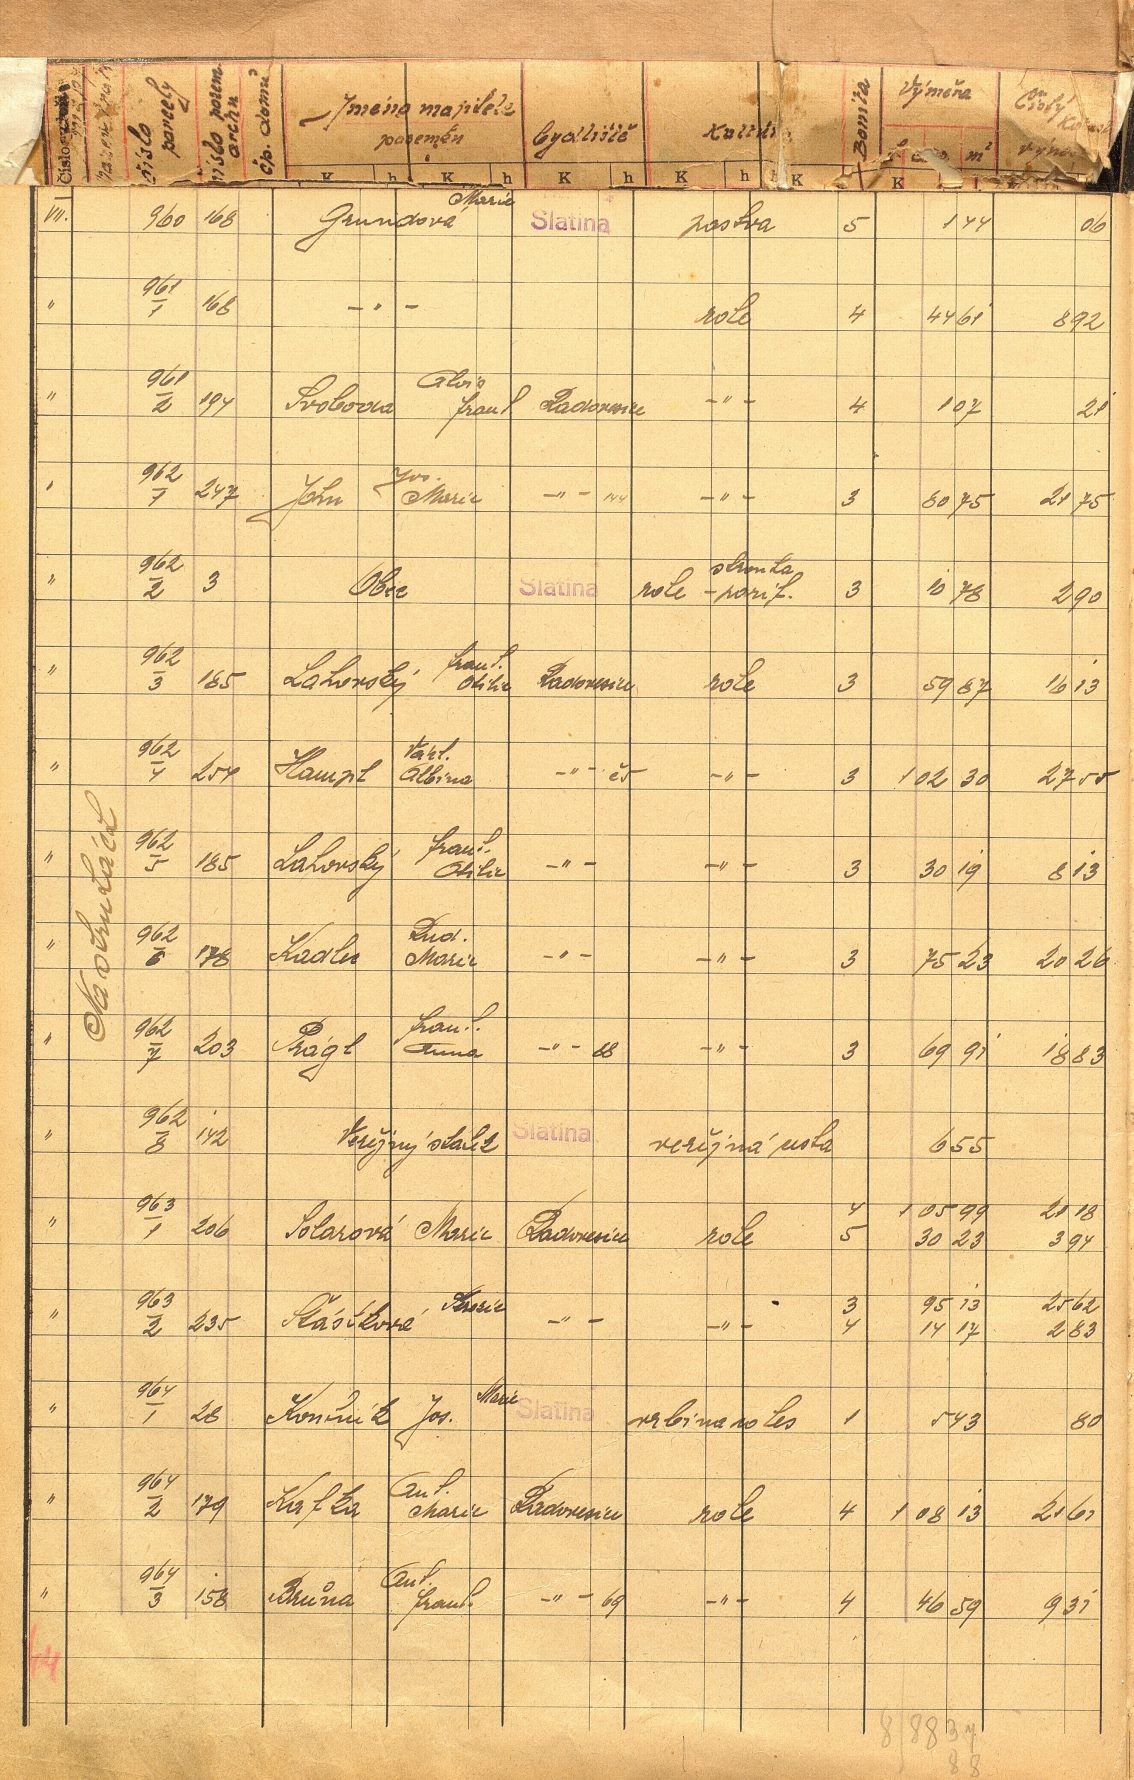 číslo parcely
číslo pozem. archu
čp. domu
Jméno majitele pozemku
bydliště
Kultura
Bonita
Výměra
Čistý
K h K h K h K h K K
VII. 960 168 Grundová Marie Slatina pastva 5 144 06
" 961/1 168 - " - role 4 44 61 8 92
" 961/2 194 Svoboda Alois Frant. Radovesice - " - 4 1 07 21
" 962/1 247 John Jos. Marie - " - 144 - " - 3 80 75 21 75
" 962/2 3 Obec Slatina role - 3 10 78 2 90
" 962/3 185 Lahovský Frant. Otilie Radovesice role 3 59 87 16 13
" 962/4 254 Hampl Václ. Albína - " - č5 - " - 3 1 02 30 27 55
" 962/5 185 Lahovský Frant. Otilie - " - - " - 3 30 19 8 13
" 962/6 178 Kadlec Rud. Marie - " - - " - 3 75 23 20 26
" 962/7 203 Prágl Frant. Anna - " - 88 - " - 3 69 91 18 83
" 962/8 142 Veřejný statek Slatina veřejná cesta 6 55
" 963/1 206 Solarová Marie Radovesice role 4 1 05 99 21 18
5 30 23 3 94
" 963/2 235 Štásiková - " - - " - 3 95 13 25 62
4 14 17 2 83
" 964/1 28 Koníček Jos. Marie Slatina 1 5 43 80
" 964/2 179 Kafka Ant. Marie Radovesice role 4 1 08 13 21 61
" 964/3 158 Brůna Ant. Frant. - " - 69 - " - 4 46 59 9 31
44
8 88 37
88